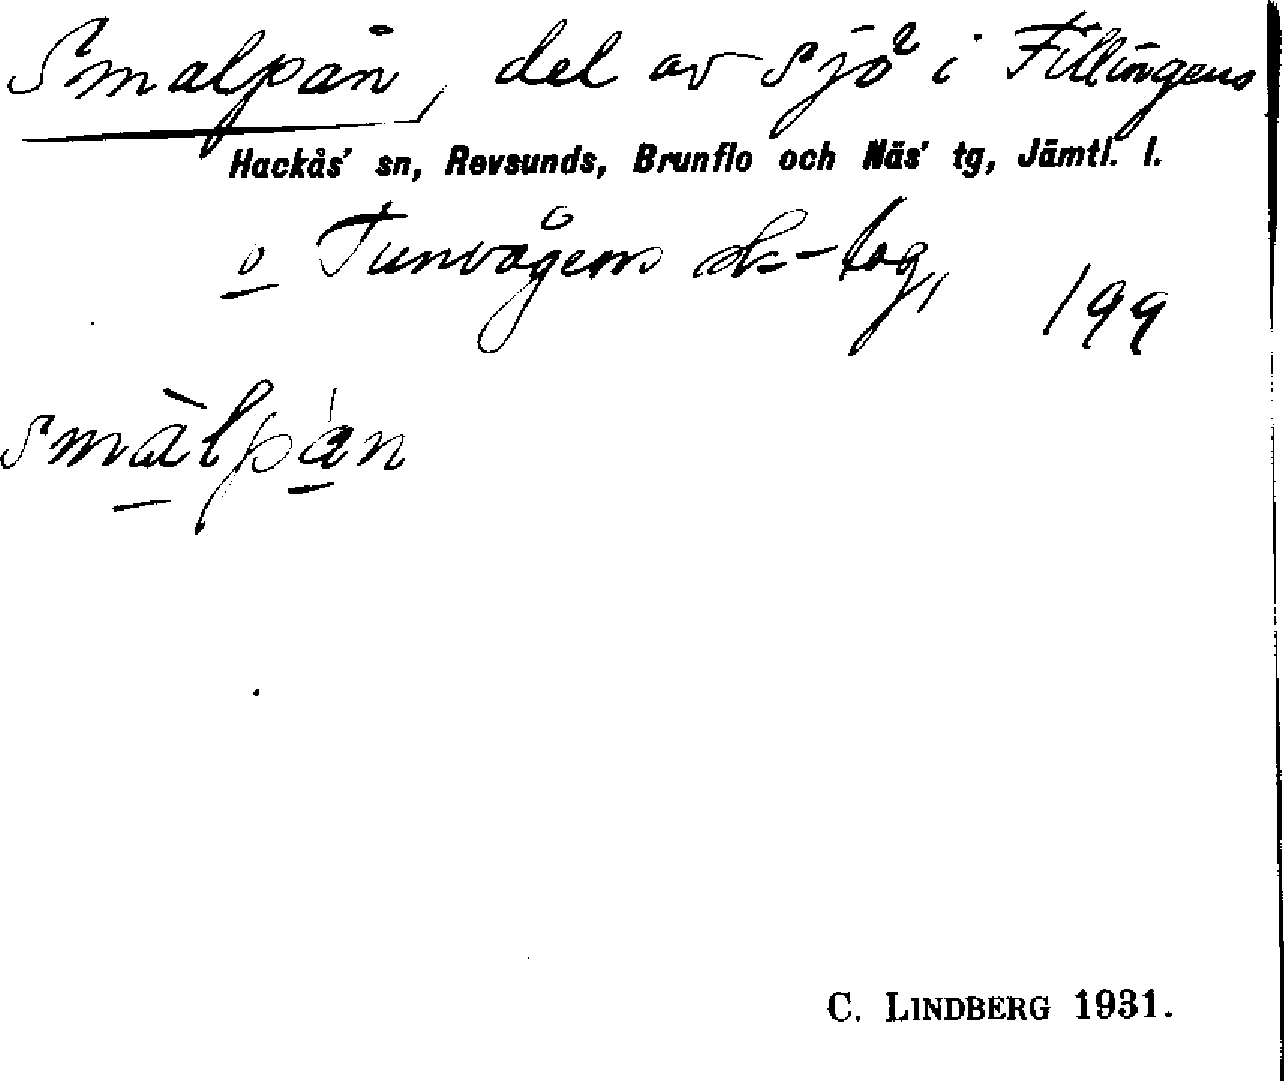 Smalpan, del av sjö i Fillingens
Hackås' sn, Revsunds, Brunflo och Näs' tg, Jämtl. l.
o Tunvågens sk-lag, 199
smàlpán
C. LINDBERG 1931.